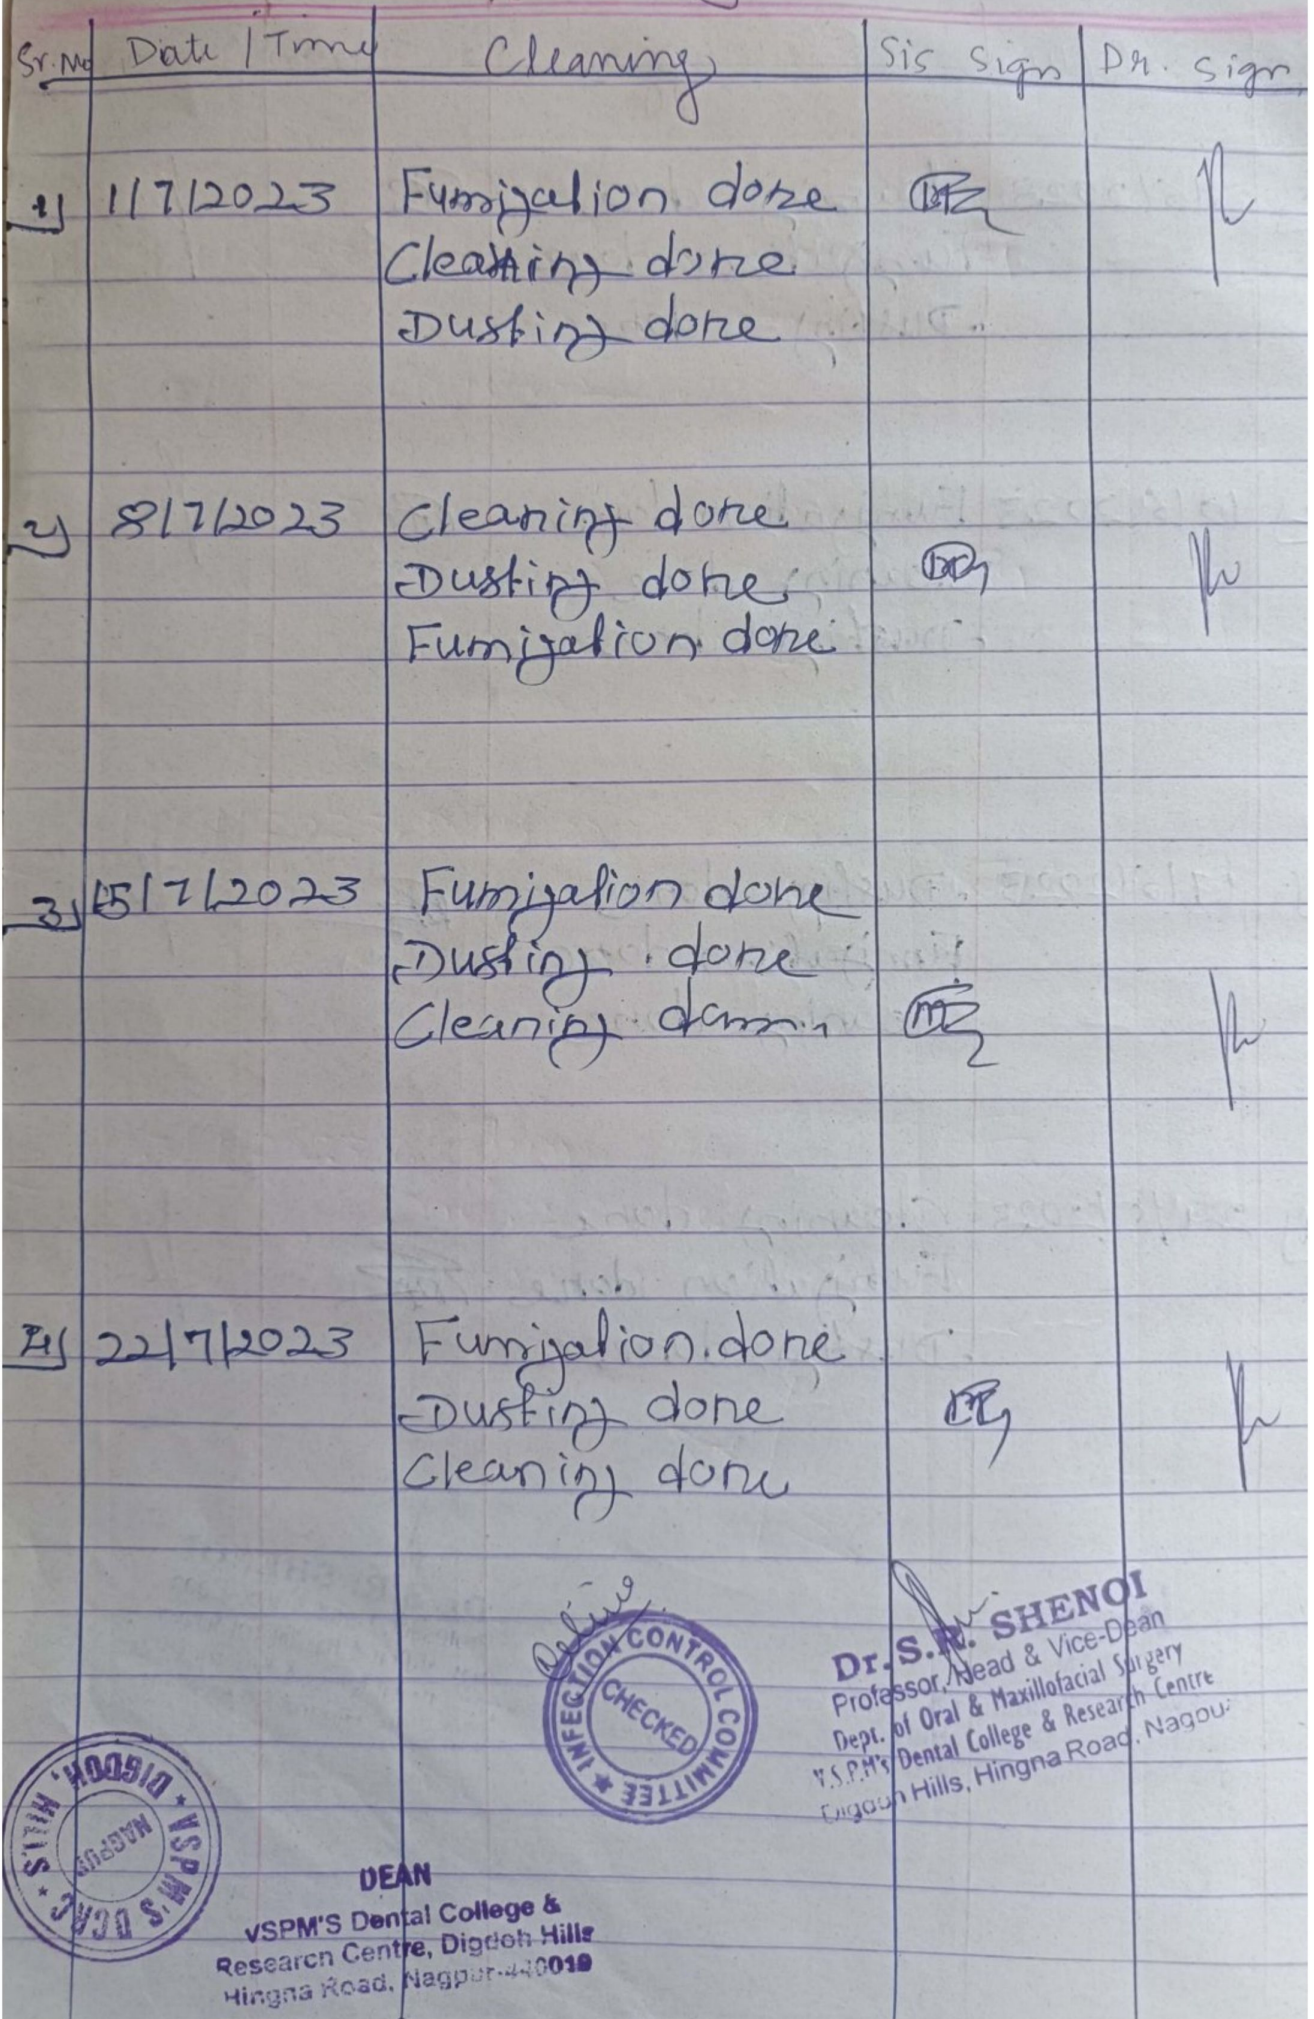 Sr.No Date / Time Cleaning Sis Sign Dr. Sign
1) 1/7/2023 Fumigation done
Cleaning done
Dusting done
2) 8/7/2023 Cleaning done
Dusting done
Fumigation done
3) 15/7/2023 Fumigation done
Dusting done
Cleaning
4) 22/7/2023 Fumigation done
Dusting done
Cleaning done
INFECTION CONTROL COMMITTEE
CHECKED
Dr. S.R. SHENOI
Professor, Head & Vice-Dean
Dept. of Oral & Maxillofacial Surgery
V.S.P.M's Dental College & Research Centre
Digdoh Hills, Hingna Road, Nagpur
VSPM'S DCRC * DIGDOH HILLS *
NAGPUR
DEAN
VSPM'S Dental College &
Research Centre, Digdoh Hills
Hingna Road, Nagpur-440019